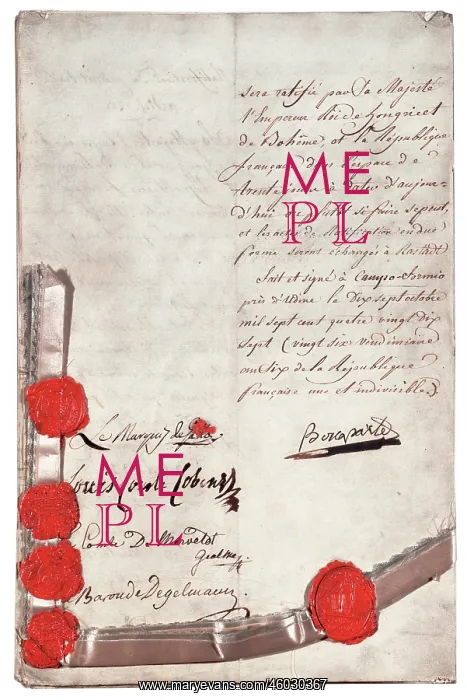 sera ratifié par Sa Majesté
l'Empereur Roi de hongrie et
de Bohême, et la République
française dans l'espace de
trente jours à dater d'aujour=
d'hui ou plutôt si faire se peut,
et les actes de Ratification en due
forme seront échangés à Rastadt
fait et signé à Campo-formio
près d'Udine le Dix sept octobre
mil sept cent quatre vingt dix
sept (vingt six vendémiaire
an six de la République
française une et indivisible.)
Le Marquis de Gallo
Bonaparte
Louis Comte Cobenzl
Comte De Merveldt
Gral Mj.
Baron de Degelmann.
ME
PL
ME
PL
www.maryevans.com/46030367